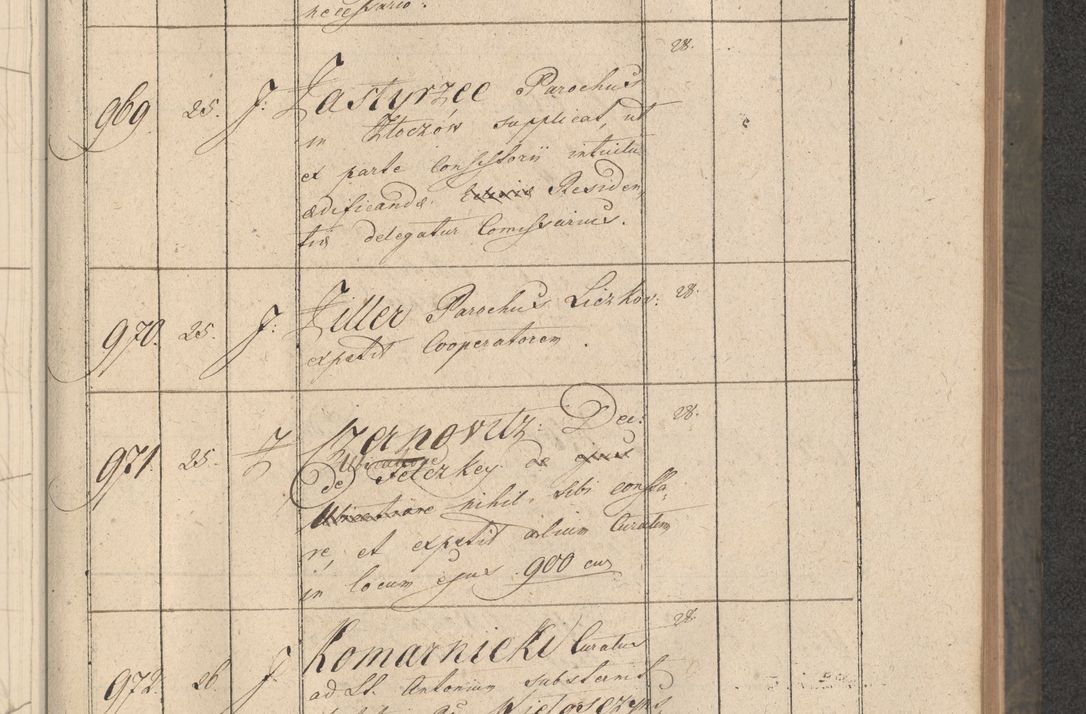 necessario.
28.
969. 25. J. Zastyrzec Parochus
in Złoczów supplicat, ut
ex parte Consistorii intuitu
ædificandæ Residen
tiæ delegatur Comissarius.
970. 25. J. Ziller Parochus Liczkov: 28.
expetit Cooperatorem.
971. 25. Czernovitz: Dec: 28.
de Teleczkey de ejus
nihil sibi consta
re, et expetit alium Curatum
in locum ejus 900 cur
28.
972. 26. J. Komarnicki Curatus
ad SS. Antonium substernit